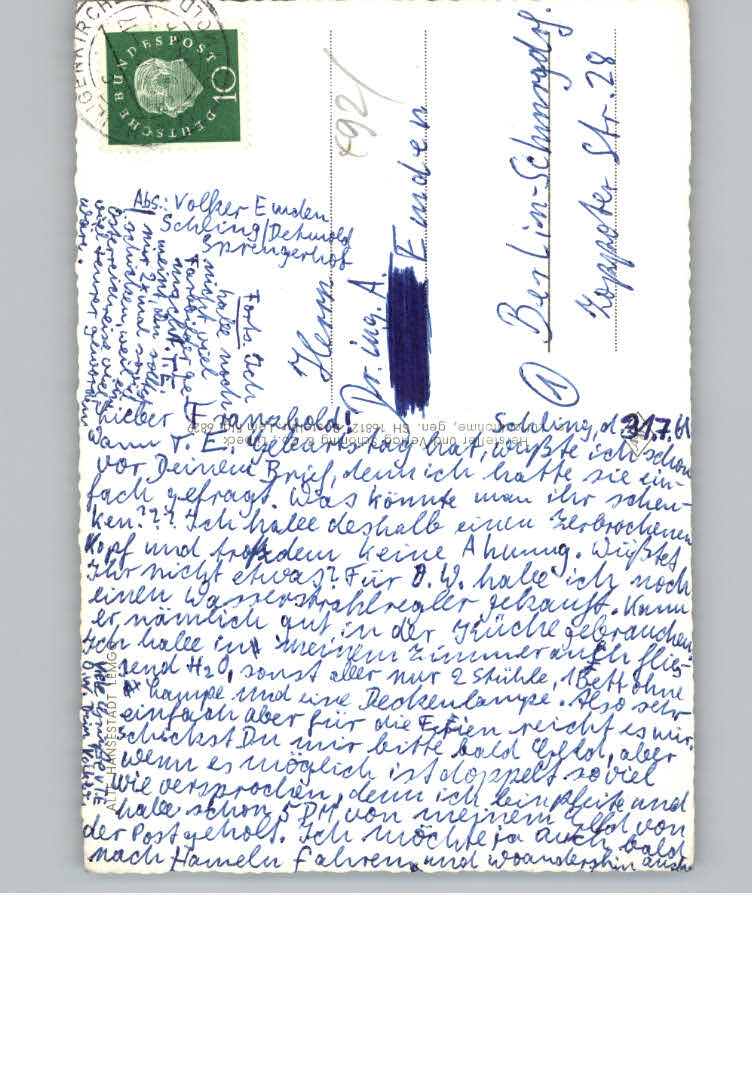 DEUTSCHE BUNDESPOST
10
892/
Abs.: Volker Emden
Schling/Detmold
Sprengerhof
Herrn
Dr. ing. A.
Emden
① Berlin-Schmargdf.
Zoppoter Str. 28
Schling, d. 31.7.61
Lieber Franzbold!
Wann T. E. Geburtstag hat, wußte ich schon
vor Deinem Brief, denn ich hatte sie ein-
fach gefragt. Was könnte man ihr schen-
ken??? Ich habe deshalb einen zerbrochenen
Kopf und trotzdem keine Ahnung. Wüßtet
Ihr nicht etwas? Für O. W. habe ich noch
einen Wasserstrahlregler gekauft. Kann
er nämlich gut in der Küche gebrauchen.
Ich habe in meinem Zimmer auch flies-
send H₂O, sonst aber nur 2 Stühle, 1 Bett ohne
Lampe und eine Deckenlampe. Also sehr
einfach aber für die Ferien reicht es mir.
Schickst Du mir bitte bald Geld, aber
wenn es möglich ist doppelt so viel
wie versprochen, denn ich bin pleite und
habe schon 5 DM von meinem Geld von
der Post geholt. Ich möchte ja auch bald
nach Hameln fahren und woandershin auch.
Forts. Ich
habe noch
nicht viel
Farbbilder ge-
macht. T. E.
meint, Du sollst
mir 2x und soviel
schicken, weil
Österreichreise viel
teurer geworden
wäre.
Viele
O. W. Dein Volker.
ALTE HANSESTADT LEMGO
Hersteller und Verlag Schöning & Co., Lübeck